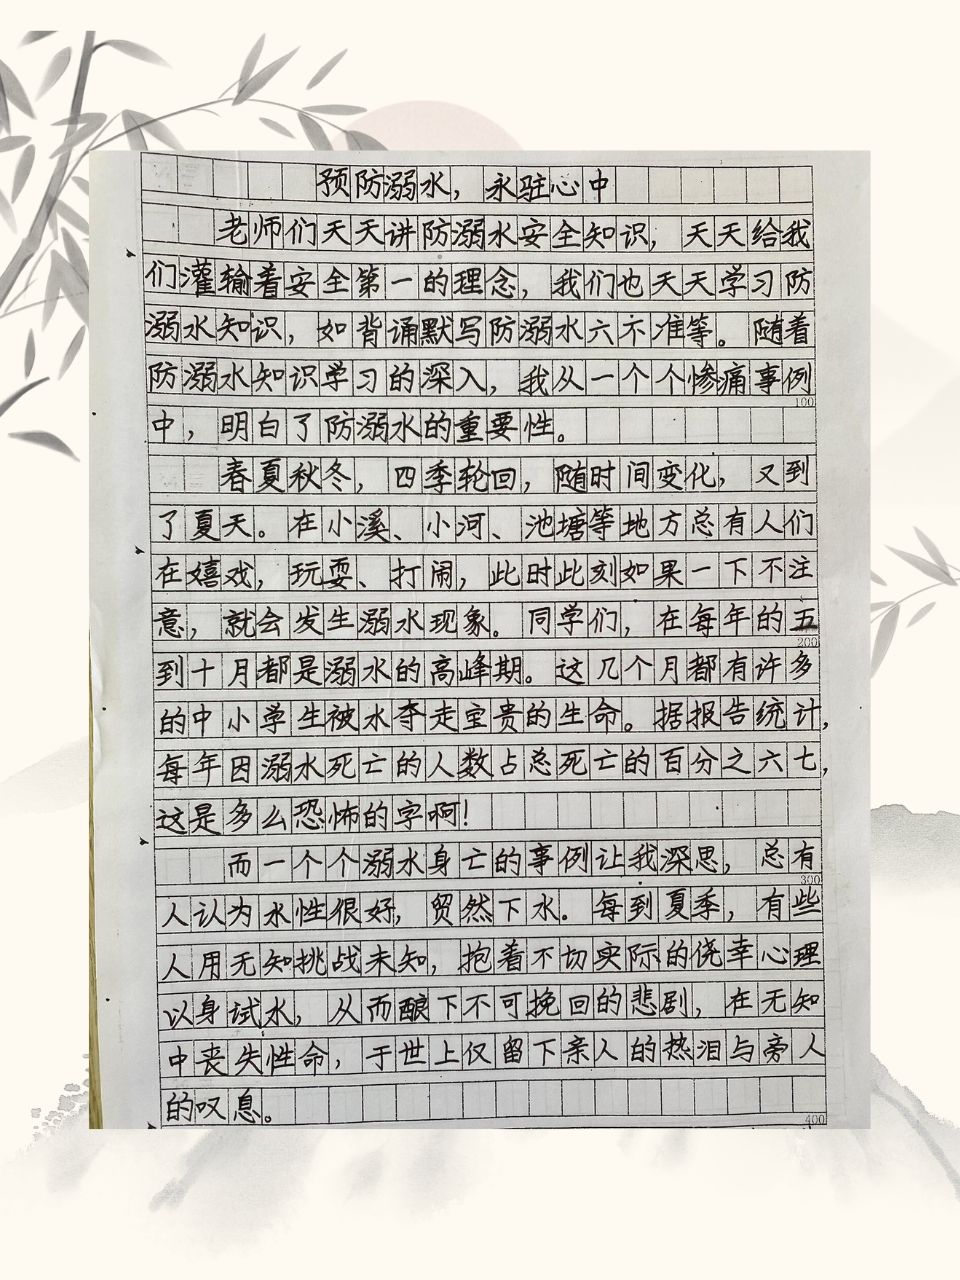 预防溺水，永驻心中
老师们天天讲防溺水安全知识，天天给我
们灌输着安全第一的理念，我们也天天学习防
溺水知识，如背诵默写防溺水六不准等。随着
防溺水知识学习的深入，我从一个个惨痛事例
100
中，明白了防溺水的重要性。
春夏秋冬，四季轮回，随时间变化，又到
了夏天。在小溪、小河、池塘等地方总有人们
在嬉戏，玩耍、打闹，此时此刻如果一下不注
意，就会发生溺水现象。同学们，在每年的五
200
到十月都是溺水的高峰期。这几个月都有许多
的中小学生被水夺走宝贵的生命。据报告统计，
每年因溺水死亡的人数占总死亡的百分之六七，
这是多么恐怖的字啊！
而一个个溺水身亡的事例让我深思，总有
300
人认为水性很好，贸然下水。每到夏季，有些
人用无知挑战未知，抱着不切实际的侥幸心理
以身试水，从而酿下不可挽回的悲剧，在无知
中丧失性命，于世上仅留下亲人的热泪与旁人
的叹息。
400